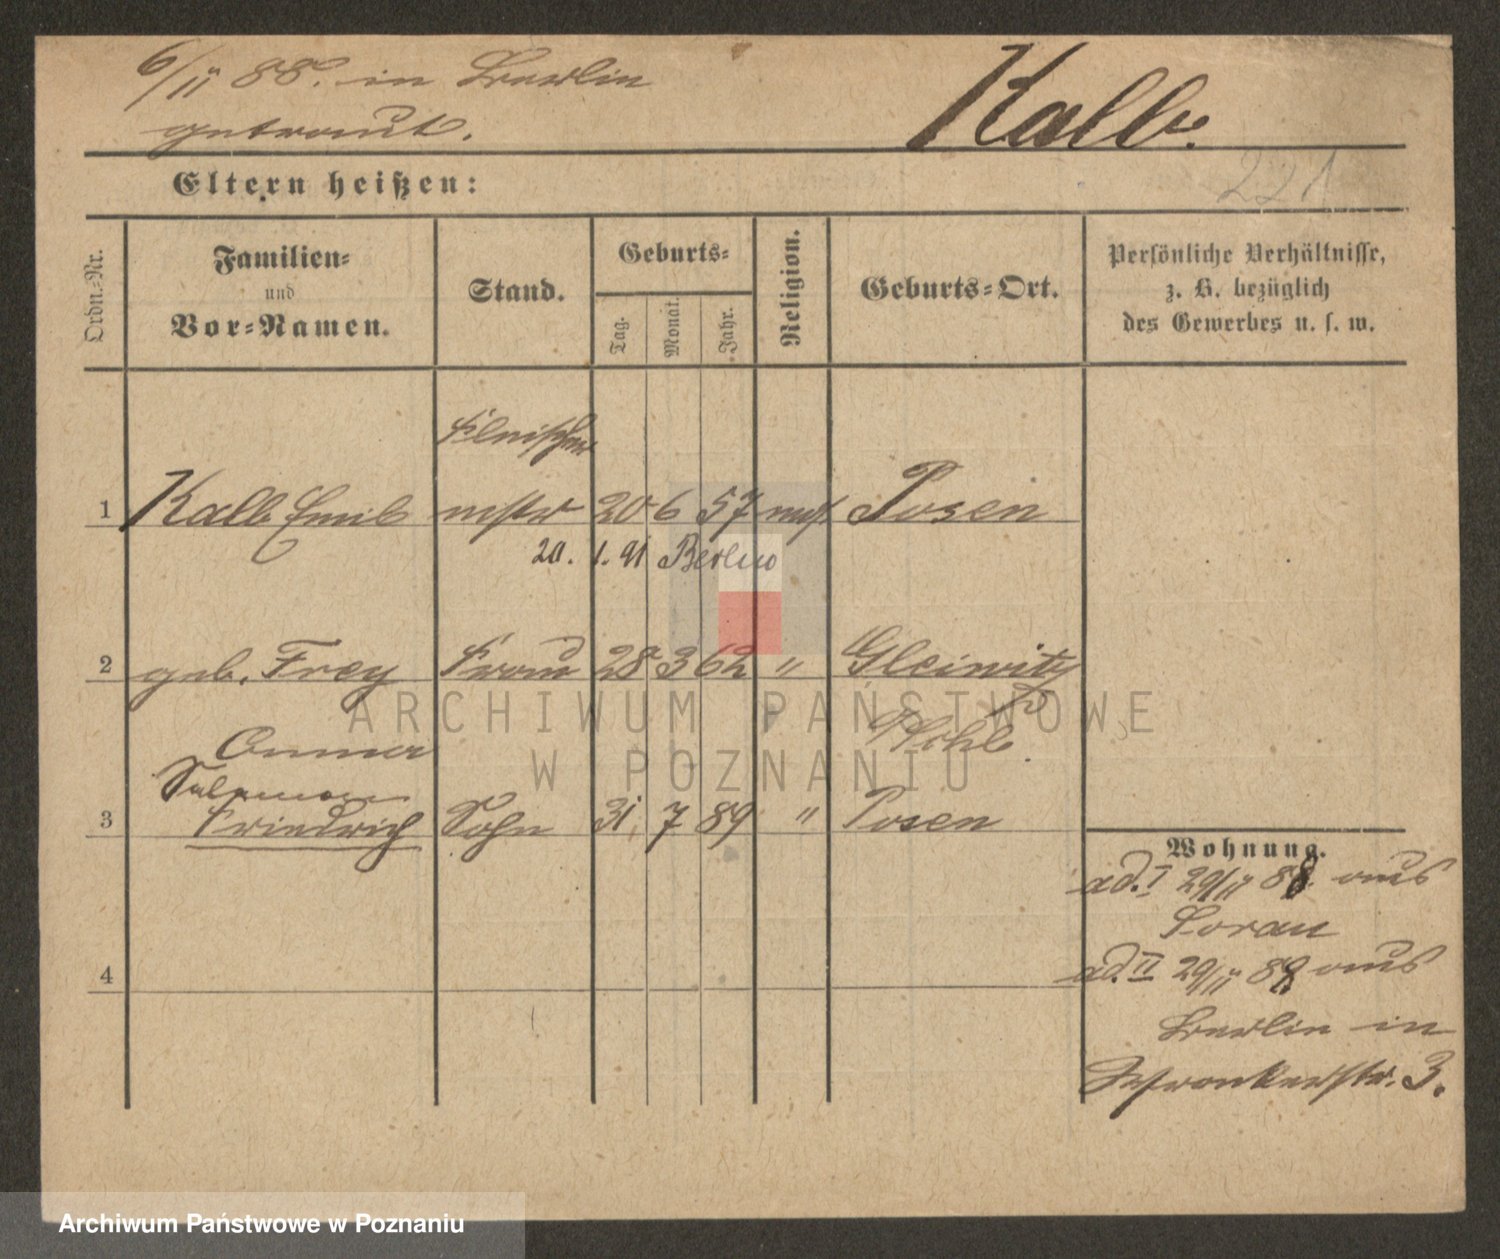 6/11 88. in Berlin
getraut.
Kalb.
221
Eltern heißen:
Ordn.-Nr.
Familien-
und
Vor-Namen.
Stand.
Geburts-
Tag.
Monat.
Jahr.
Religion.
Geburts-Ort.
Persönliche Verhältnisse,
z. B. bezüglich
des Gewerbes u. s. w.
Fleischer
1 Kalb Emil mstr 20 6 57 mos Posen
20. 1. 91 Berlin
2 geb. Frey Frau 28 3 62 " Gleiwitz
Anna
Salomon
3 Friedrich Sohn 31 7 89 " Posen
4
Wohnung.
ad. I 29/11 88 aus
Soran
ad. II 29/11 88 aus
Berlin in
Wronkerstr. 3.
ARCHIWUM PAŃSTWOWE
W POZNANIU
Archiwum Państwowe w Poznaniu